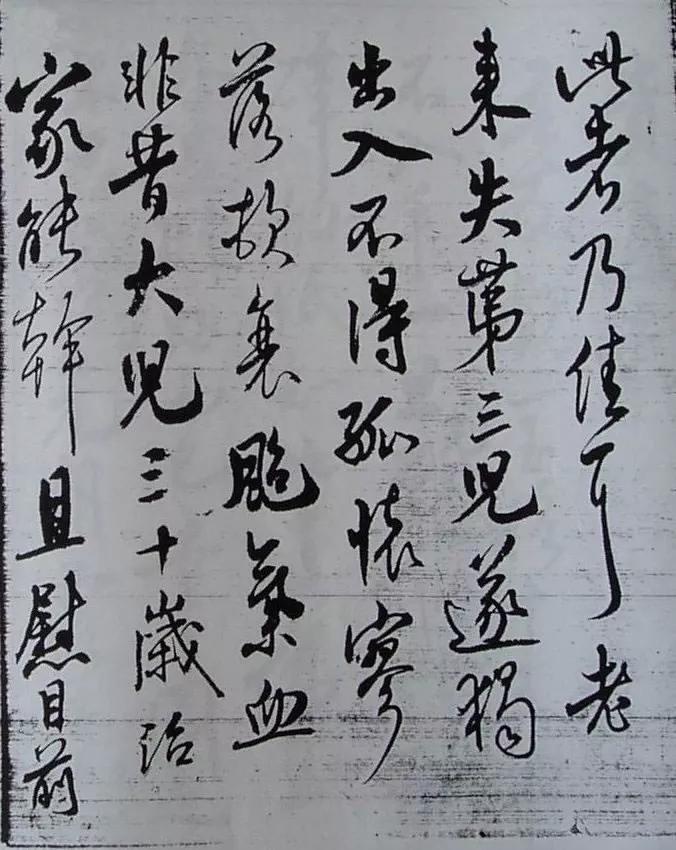 此者乃佳耳老
來失第三兒遂獨
出入不得孤懷寥
落頓衰颯氣血
非昔大兒三十歲治
家能幹且慰目前